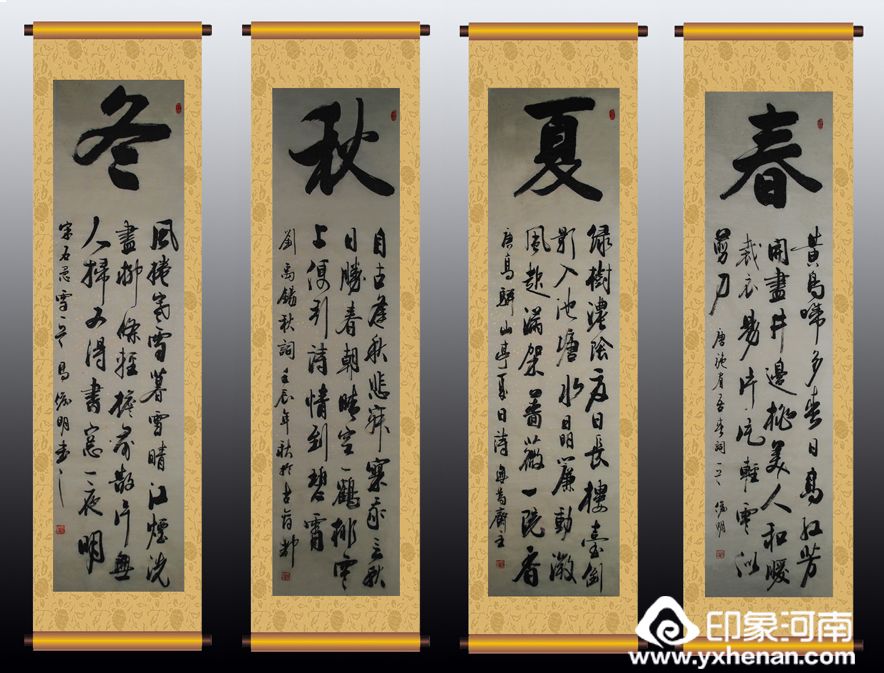 春
黄鳥啼多春日高红芳
開盡井邊桃美人和暖
裁衣易片片輕雲似
剪刀
唐施肩吾春詞一首
夏
绿樹濃陰夏日長樓臺倒
影入池塘水晶簾動微
風起滿架薔薇一院香
唐高駢山亭夏日詩 齋主
秋
自古逢秋悲寂寥我言秋
日勝春朝晴空一鶴排雲
上便引詩情到碧霄
劉禹錫秋詞壬辰年秋於古商都
冬
風捲寒雲暮雪晴江煙洗
盡柳條輕檐前數片無
人掃又得書窗一夜明
印象河南
www.yxhenan.com